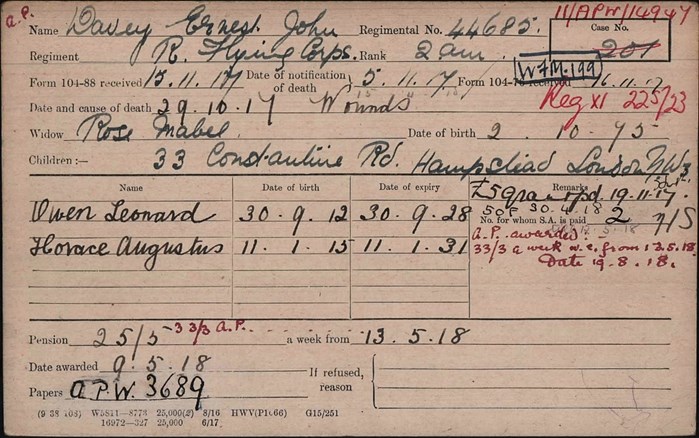 A.P.
Name Davey Ernest John Regimental No. 44685. 11/APW/14947
Case No.
201
Regiment R. Flying Corps. Rank 2 am.
W.F.M.199
Form 104-88 received 15.11.17 Date of notification of death 5.11.17 Form 104-76 received 16.11.17
Reg XI 225/23
Date and cause of death 29.10.17 Wounds
Widow Rose Mabel Date of birth 2.10.75
Children:— 33 Constantine Rd. Hampstead London NW3
Name Date of birth Date of expiry Remarks
£5 gra pd. 19.11.17.
Owen Leonard 30.9.12 30.9.28
30.4.18
No. for whom S.A. is paid 2 7/5
Horace Augustus 11.1.15 11.1.31
A.P. awarded.
33/3 a week w.e. from 13.5.18.
Date 19.8.18.
Pension 25/5 33/3 A.P. a week from 13.5.18
Date awarded 9.5.18
If refused, reason
Papers A.P.W. 3689
(9 38 108) W5811—8773 25,000(2) 8/16 HWV(P1066) G15/251
16972—327 25,000 6/17.